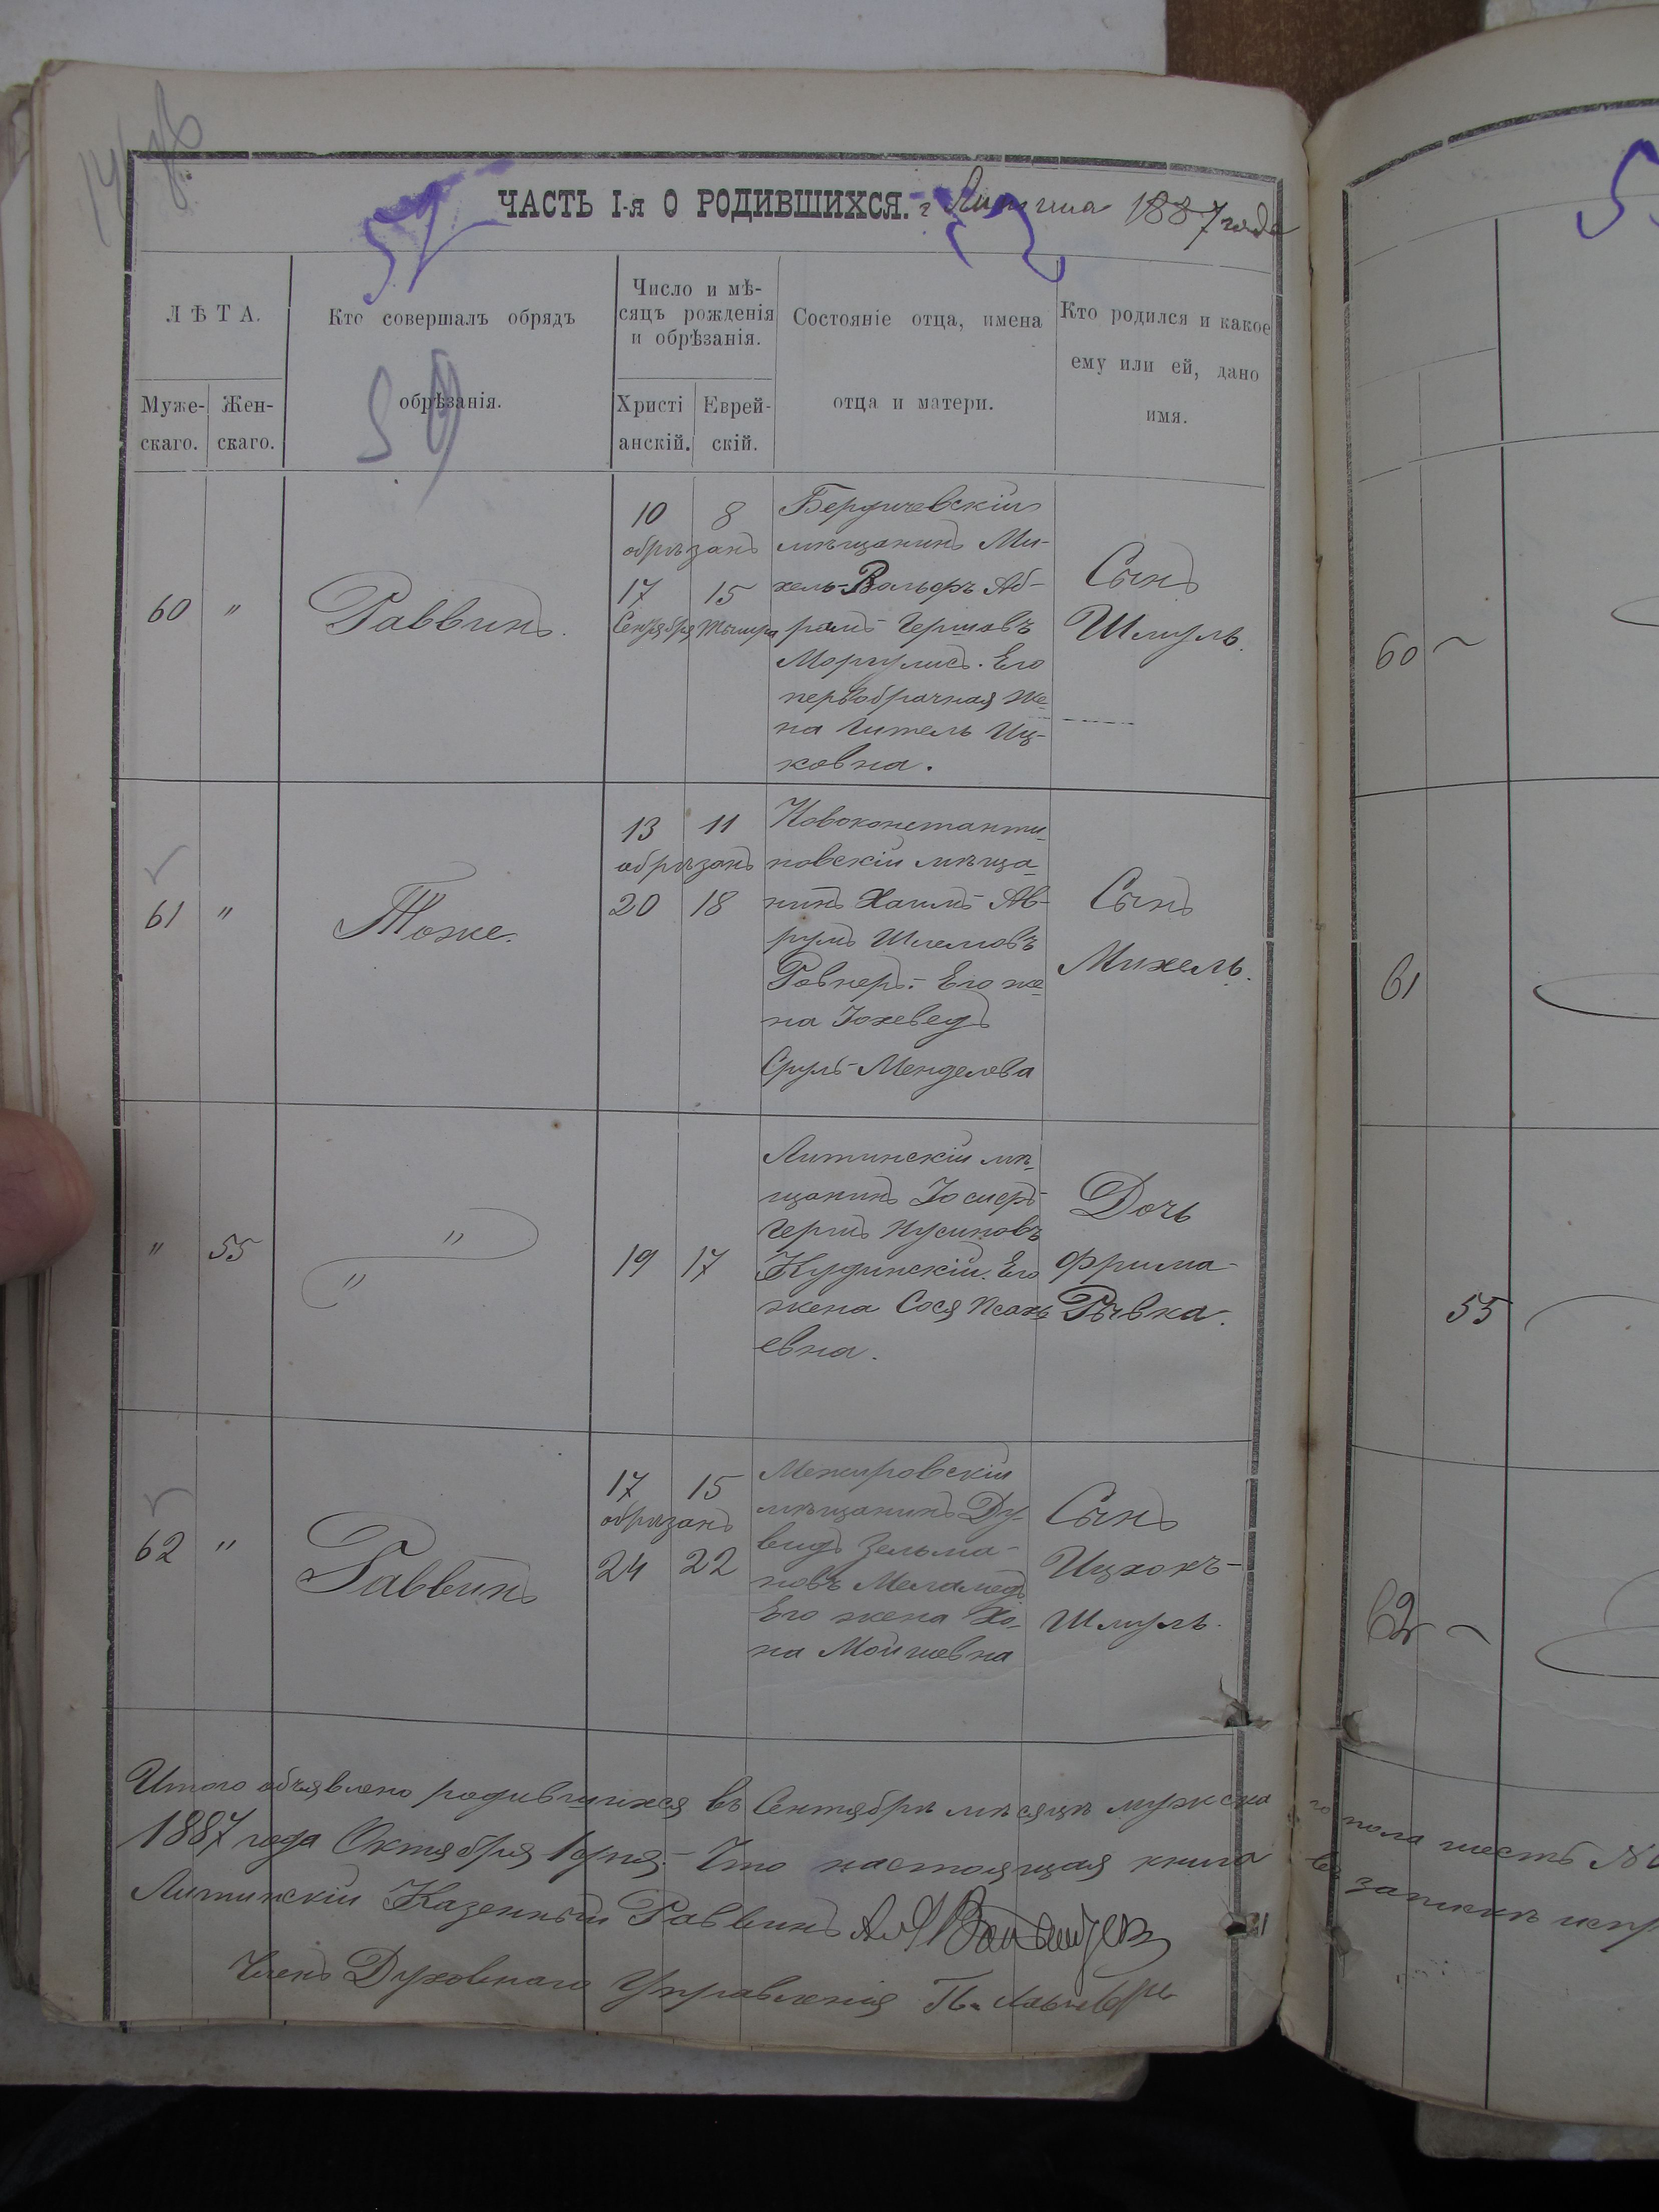 ЧАСТЬ I-я О РОДИВШИХСЯ. г Литина 1887 года
ЛѢТА.
Муже-
скаго.
Жен-
скаго.
Кто совершалъ обрядъ
обрѣзанія.
59
Число и мѣ-
сяцъ рожденія
и обрѣзанія.
Христі
анскій.
Еврей-
скій.
Состояніе отца, имена
отца и матери.
Кто родился и какое
ему или ей, дано
имя.
60 "
Раввинъ.
10 8
обрѣзанъ
17 15
Сентября Тишра
Бердичевскій
мѣщанинъ Ми-
хель-Вольфъ Аб-
рамъ Гершовъ
Моргулисъ. Его
первобрачная же-
на Гитель Иц-
ковна.
Сынъ
Шмуль.
61 "
Тоже.
13 11
обрѣзанъ
20 18
Новоконстанти-
новскій мѣща-
нинъ Хаимъ-Ав-
румъ Шлемовъ
Ровнеръ. Его же-
на Іохеведъ
Сруль-Менделева
Сынъ
Михель.
" 55
"
"
19 17
Литинскій мѣ-
щанинъ Іосифъ-
Гершъ Нусиновъ
Кудинскій. Его
жена Сося Псахъ
евна.
Дочь
Фрима-
Рывка.
62 "
Раввинъ
17 15
обрѣзанъ
24 22
Межировскій
мѣщанинъ Ду-
видъ Зельма-
новъ Меламедъ
Его жена Хо-
на Мойшовна
Сынъ
Ицхокъ-
Шмуль.
Итого объявлено родившихся въ Сентябрѣ мѣсяцѣ мужска
1887 года Октября 1 дня. Что настоящая книга
Литинскій Казенный Раввинъ
Членъ Духовнаго Управленія
60
61
55
62
го пола шесть
въ запискѣ